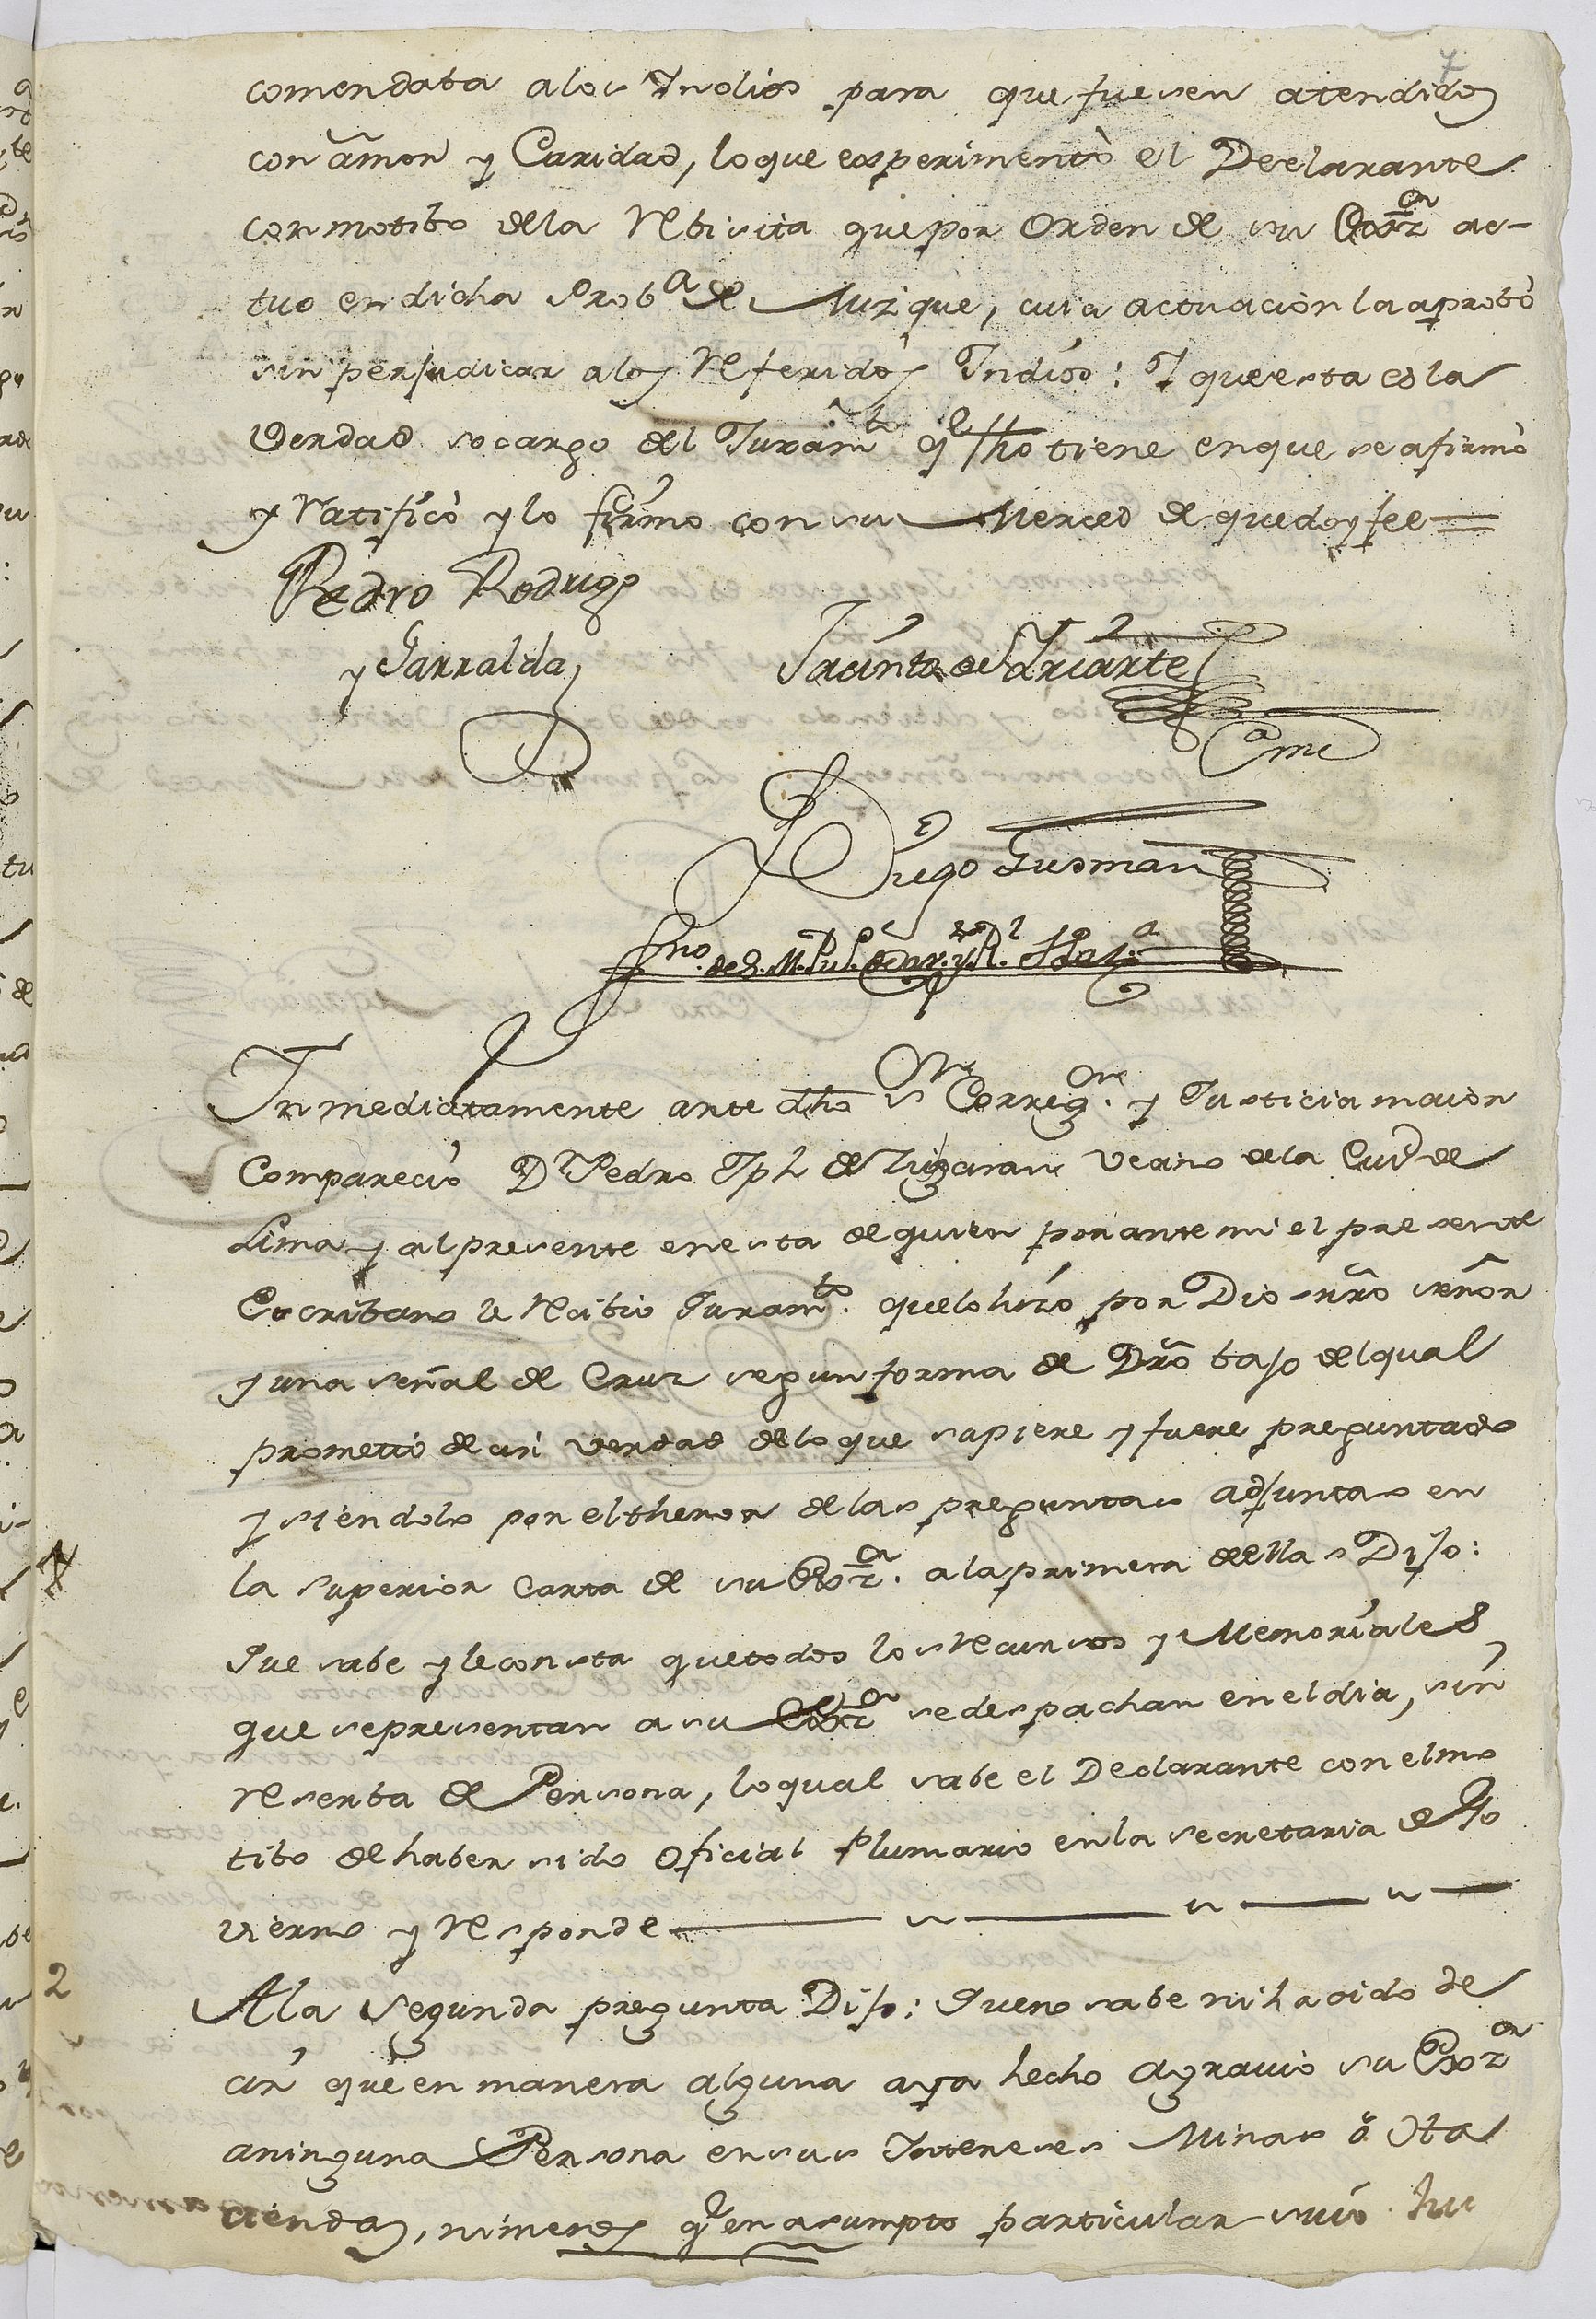 7
comendaba a los Indios para que fuesen atendidos
con amor y Caridad, lo que experimentò el Declarante
con motibo de la Rebisita que por Orden de su Exª ac-
tuo en dicha Probª de Mizque, cuia actuacion la aprobò
sin perjudicar a los Referidos Indios: Y que esta es la
Verdad so cargo del Juramto que fho tiene en que se afirmò
y Ratificò y lo firmo con su Merced de que doy fee =
Pedro Rodrigo
y Garralda
Jacinto de Yriarte
Ante mi
Diego Gusman
Sno. de S. M. Pu.co
Inmediatamente ante dho Sor Corregor. y Justicia maior
Compareciò Dn Pedro Jph de Zugarain Vecino de la Ciud de
Lima y al presente en esta de quien por ante mi el presente
Escribano le Recibio Juramto. que lo hizo por Dios nro señor
y una señal de Cruz segun forma de Dro bajo del qual
promettiò decir verdad de lo que supiere y fuere preguntado
y siendolo por el thenor de las preguntas adjuntas en
1 la superior Carta de su Exª. a la primera de ellas Dijo:
Que sabe y le consta que todos los Recursos y Memoriales
que se presentan a su Exª se despachan en el dia, sin
Reserba de Persona, lo qual sabe el Declarante con el mo
tibo de haber sido Oficial Plumario en la secretaria de Go
vierno y Responde
2 A la segunda pregunta Dijo: Que no sabe ni ha oido de
cir que en manera alguna aya hecho agravio su Exª
a ninguna Persona en sus Intereses Minas ò Ha
ciendas, ni menos qe en asumpto particular suio hu